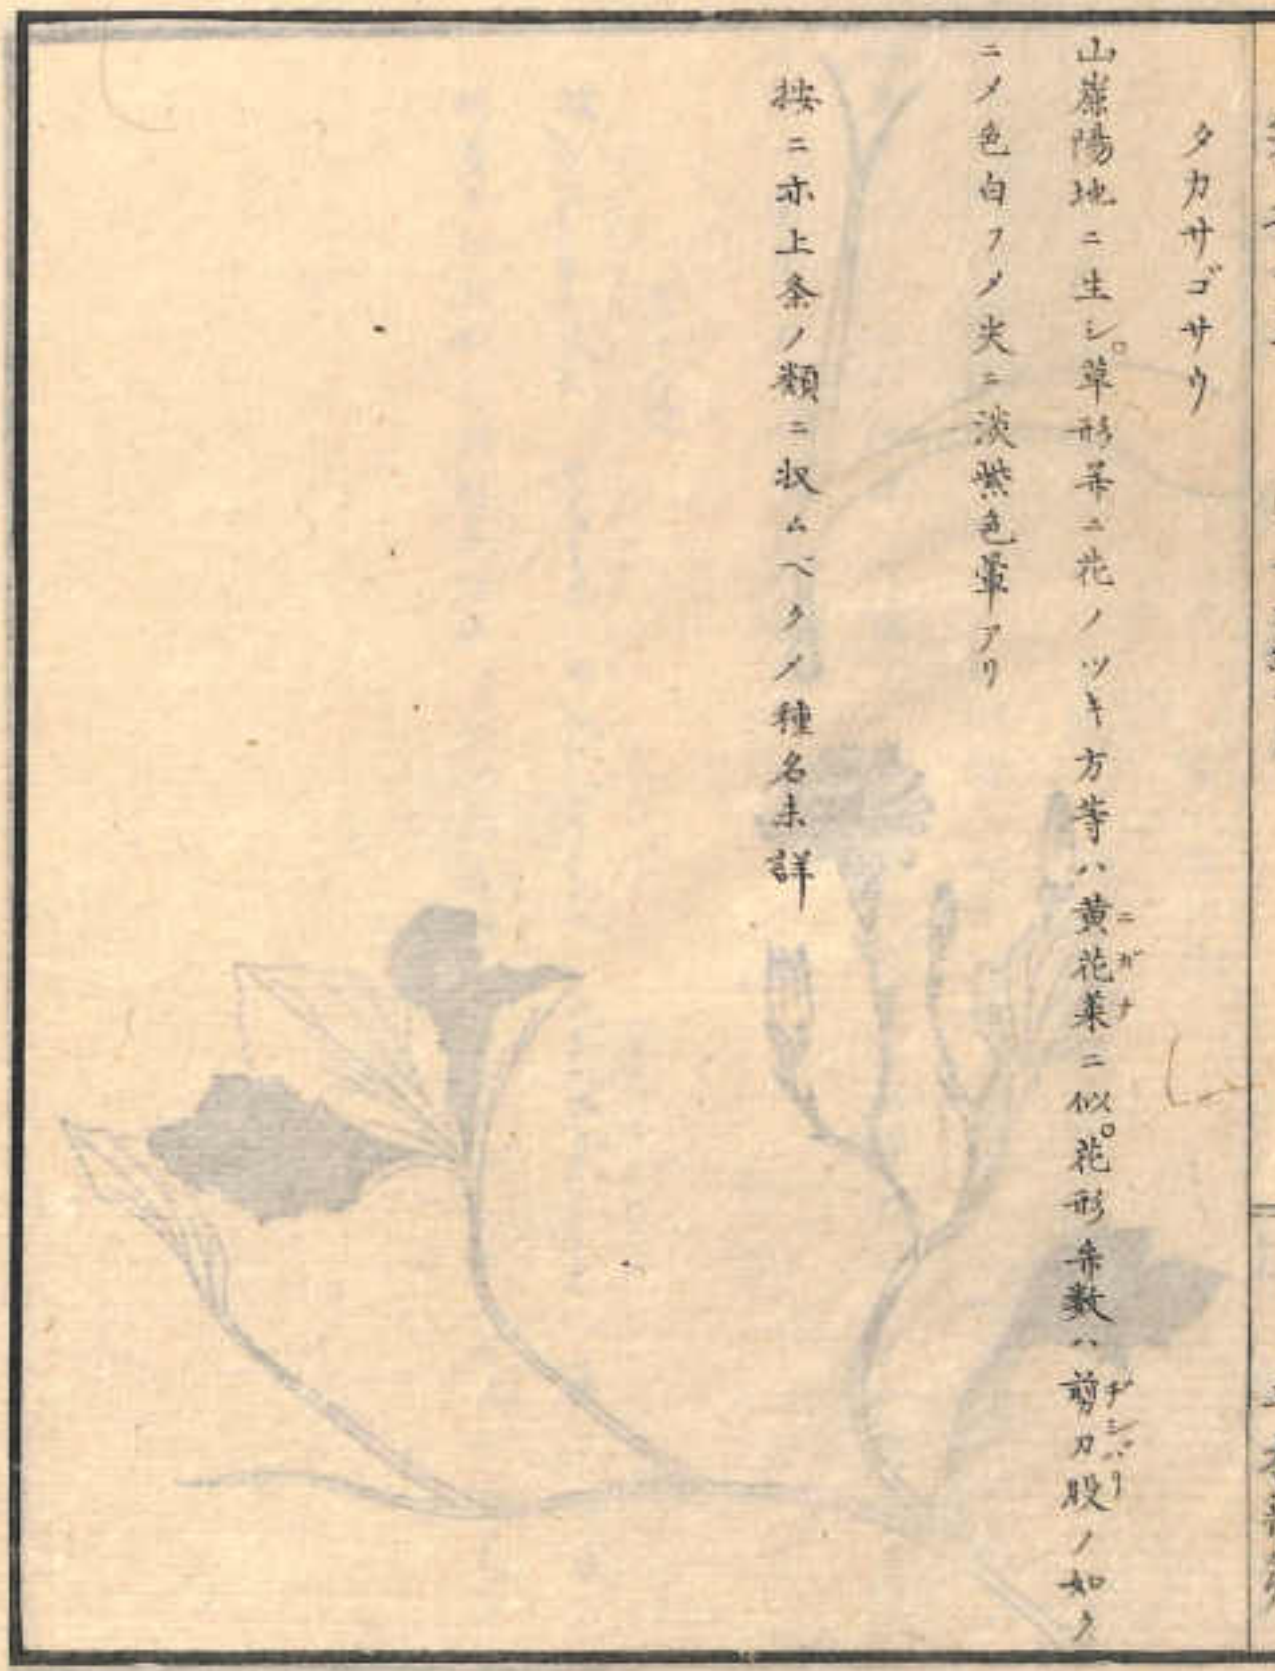 タカサゴサウ
山崖陽地ニ生シ。草形并ニ花ノツキ方等ハ黄花菜ニ似。花形弁数ハ剪刀股ノ如ク
ニガナ
ヂシバリ
ニ〆色白フ〆尖ニ淡紫色暈アリ
按ニ亦上条ノ類ニ収ムベク〆種名未詳